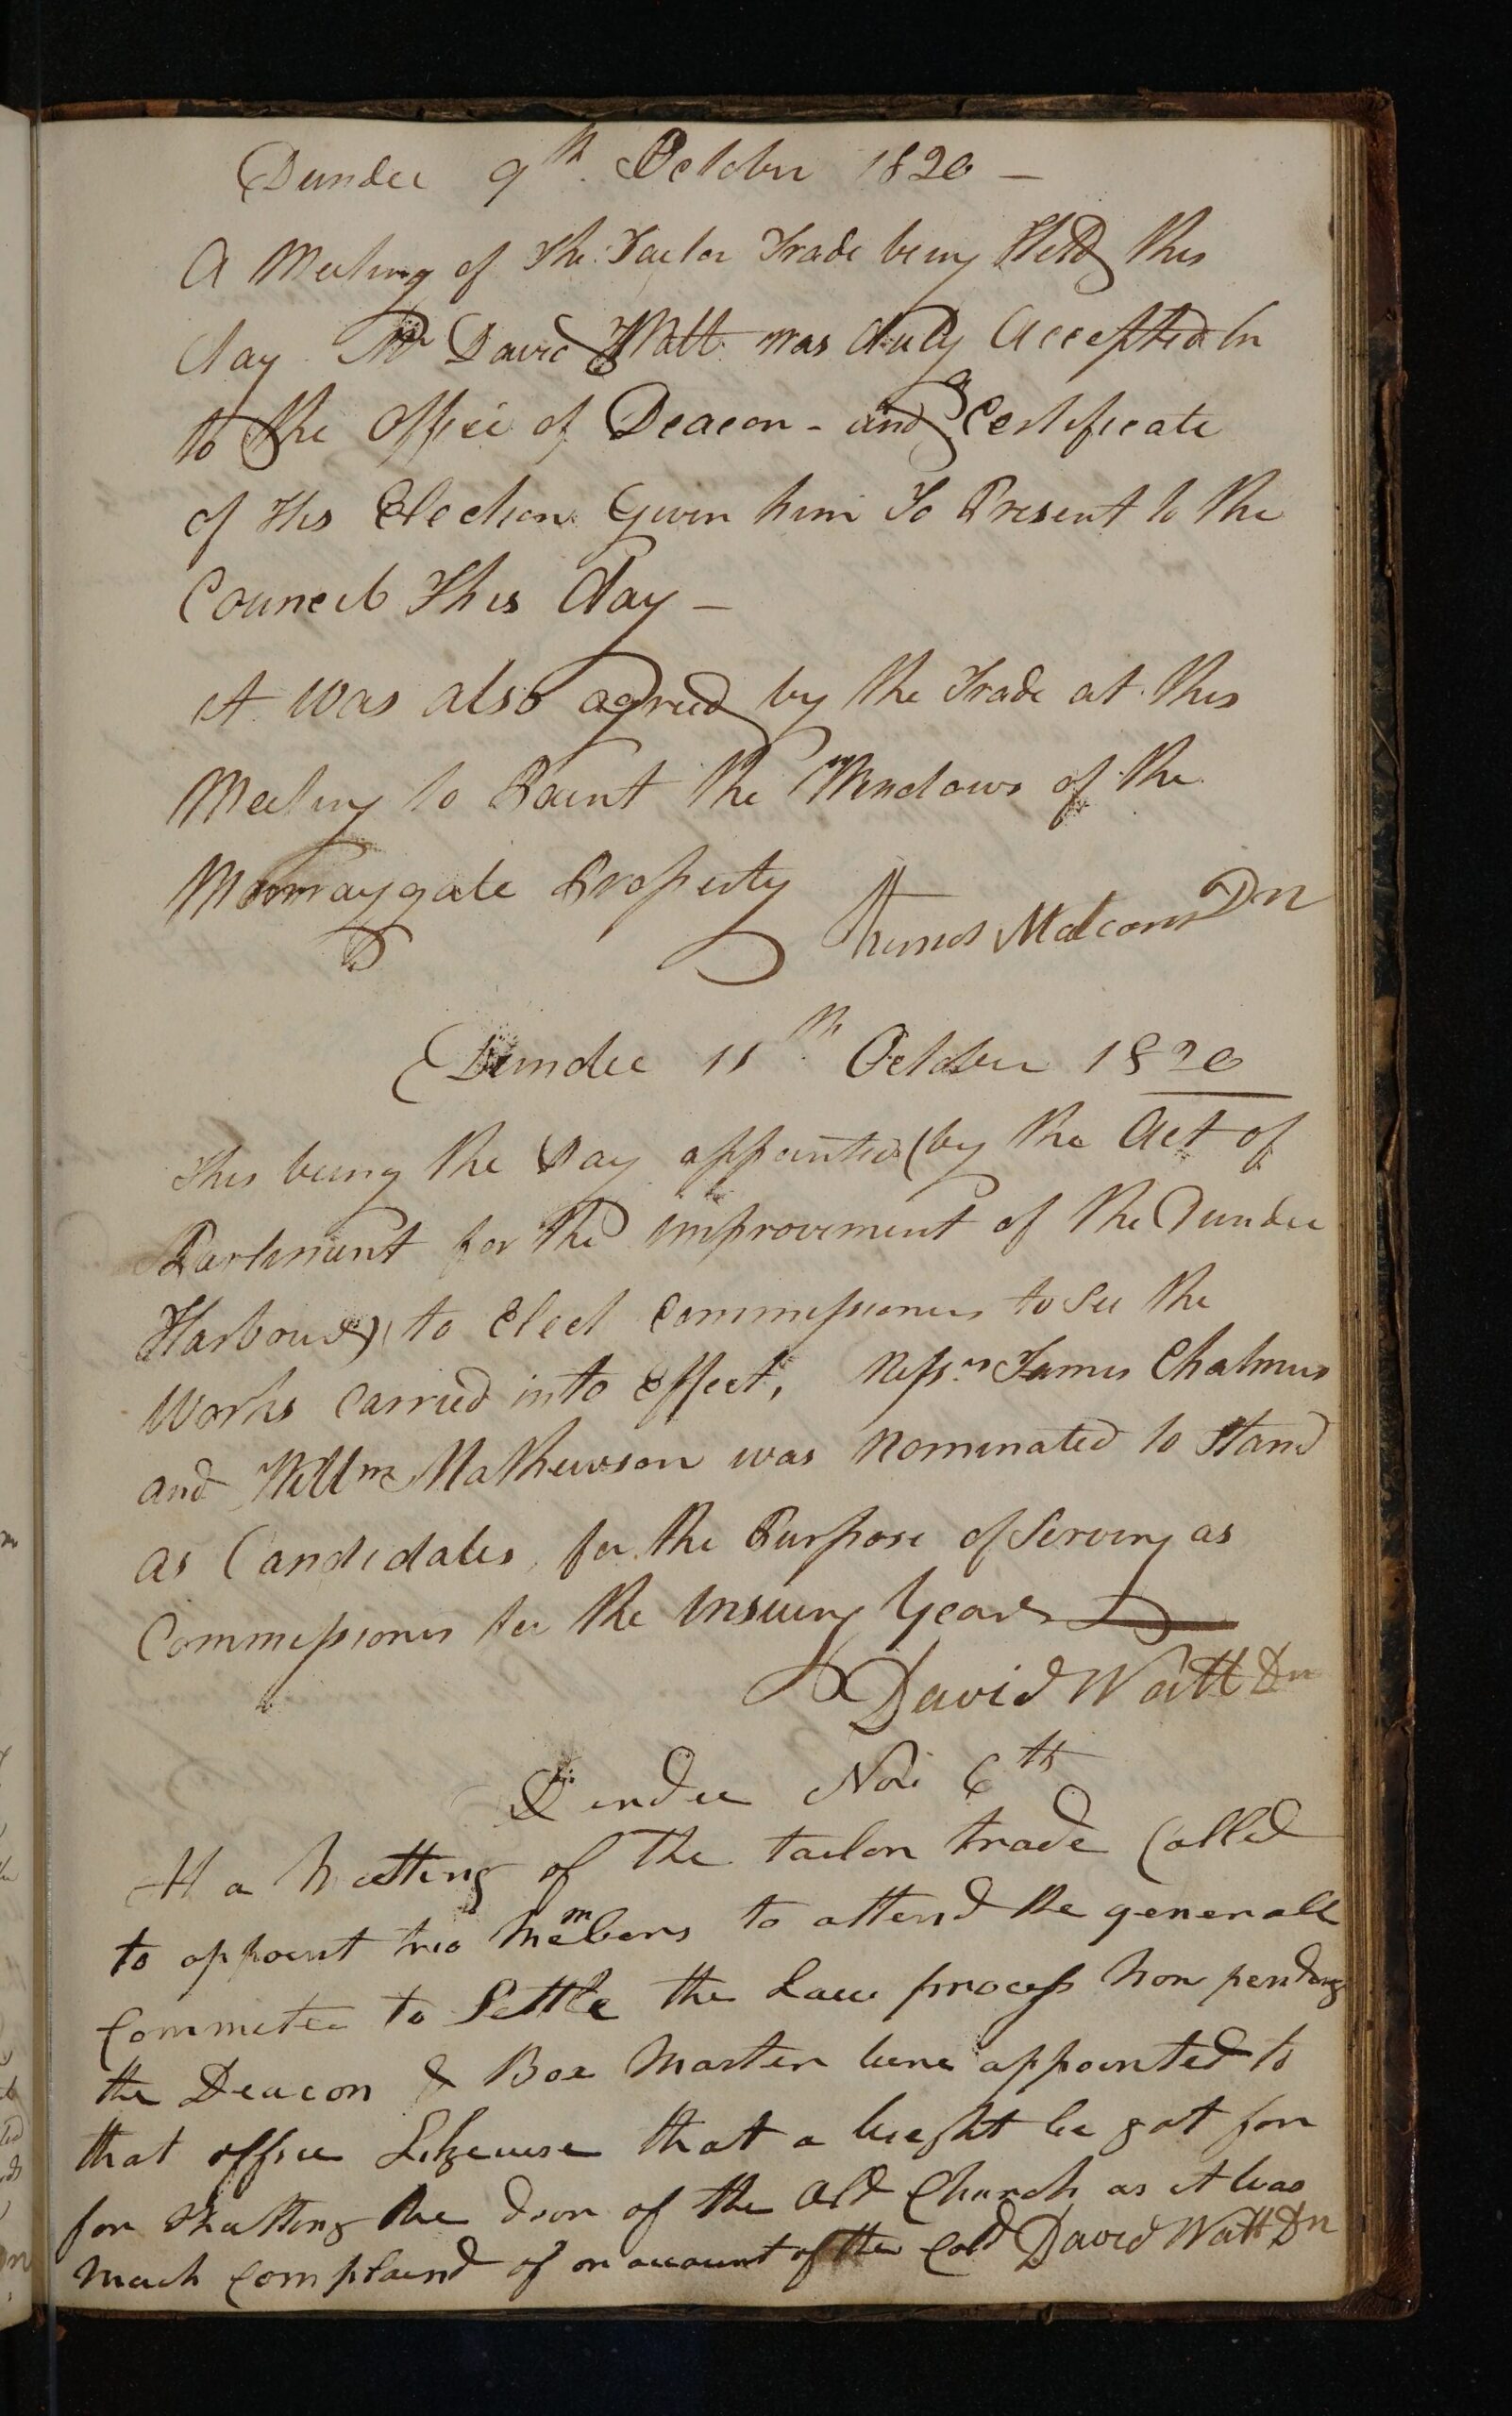 Dundee 9th October 1820 —
A Meeting of The Tailor Trade being Held this
day Mr David Watt was duly Accepted In
to the Office of Deacon - and a Certificate
of His Election Given him To Present to the
Council This day —
it was also agreed by the Trade at this
Meeting to Paint the Windows of the
Murraygate Property
Thomas Malcom Dn
Dundee 11th October 1820
This being the Day appointed (by the Act of
Parlement for the improvement of the Dundee
Harbour) to Elect Commissioners to See the
Works Carried into Effect, Messrs James Chalmers
and Willm Mathewson was Nominated to Stand
as Candidates, for the Purpose of Serving as
Commissioners for the Insuing Year
David Watt Dn
Dundee Nov 6th
At a Meetting of the tailor trade Called
to appoint two Members to attend the generall
Commetee to Settle the Law process now pending
the Deacon & Box Master were appointed to
that office Likewise that a weight be got for
for Shutting the door of the Old Church as it was
much Complaind of on account of the Cold David Watt Dn